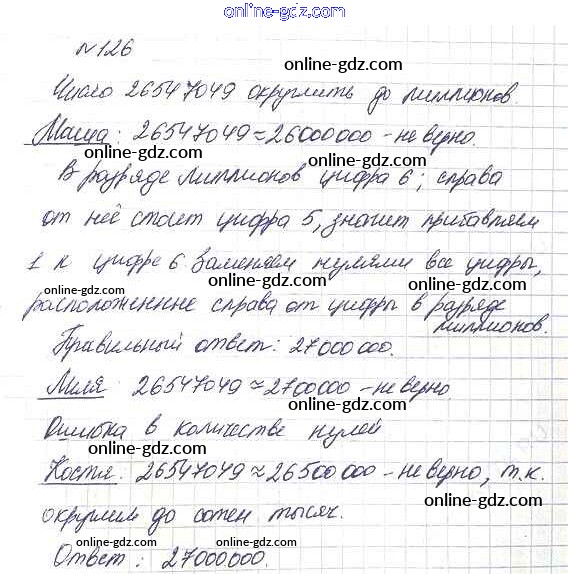 www.online-gdz.com
№126
online-gdz.com
Число 26547049 округлить до миллионов.
online-gdz.com
Маша: 26547049≈26000000 - не верно.
online-gdz.com online-gdz.com
В разряде миллионов цифра 6; справа
от неё стоит цифра 5, значит прибавляем
online-gdz.com
1 к цифре 6 Заменяем нулями все цифры,
online-gdz.com online-gdz.com
расположенные справа от цифры в разряде
миллионов.
online-gdz.com
Правильный ответ: 27000000.
online-gdz.com
Миля: 26547049≈2700000 - не верно.
online-gdz.com
Ошибка в количестве нулей
online-gdz.com
Костя: 26547049≈26500000 - не верно, т.к.
online-gdz.com
округлил до сотен тысяч.
online-gdz.com
Ответ: 27000000.
online-gdz.com